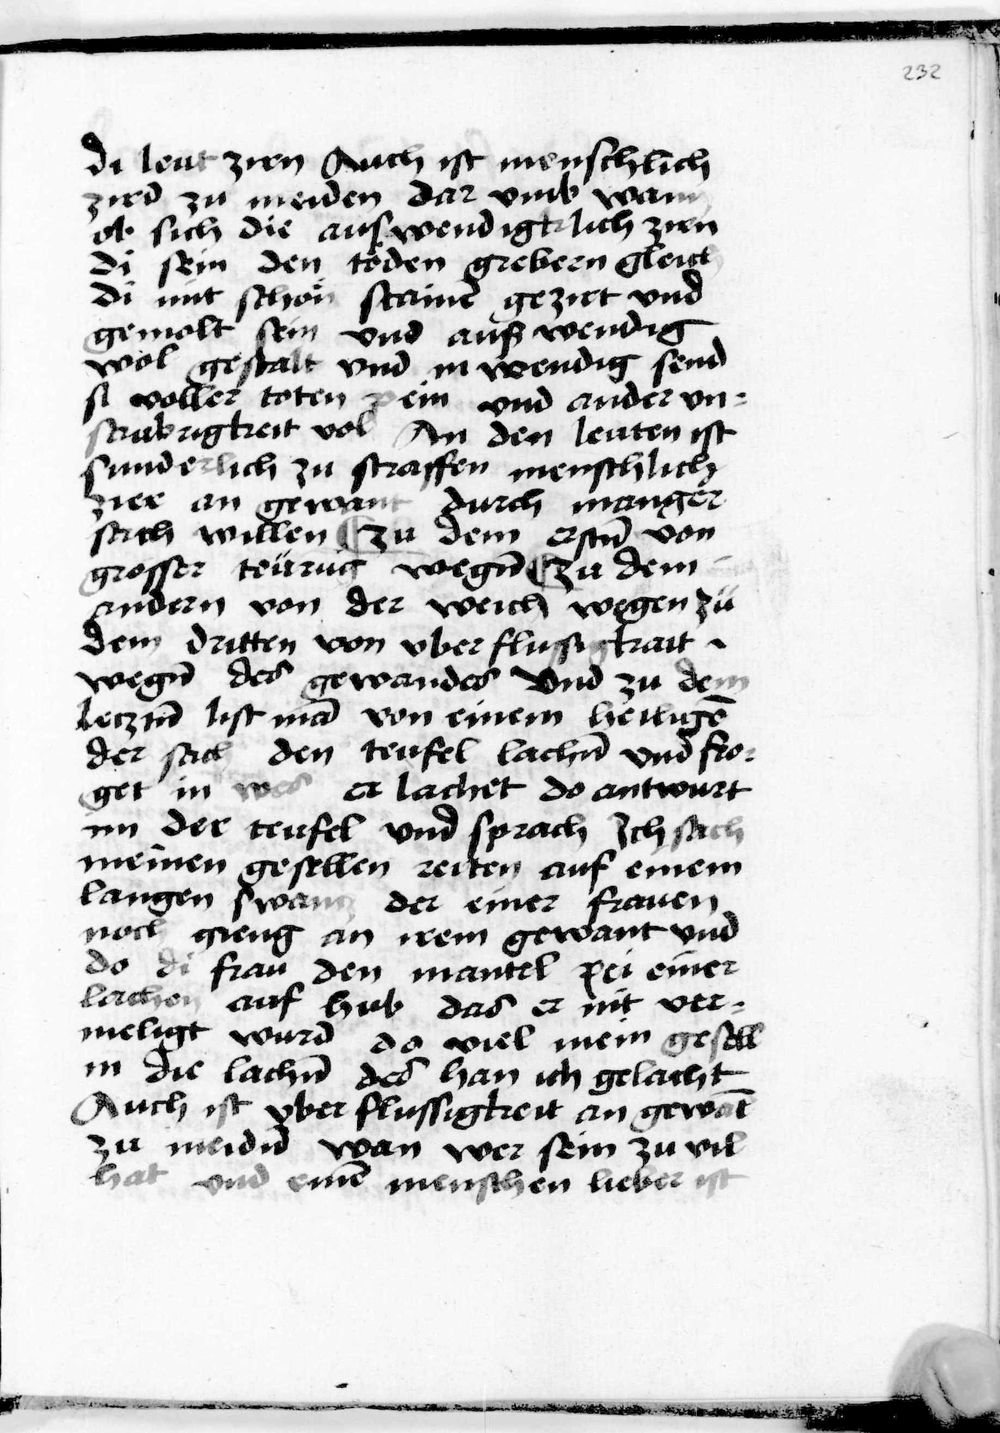 232
di leut ziren Auch ist menschlich
zird zu meiden dar vmb wann
ob sich die auswendigklich zirn
di sein den töden grebern gleich
di mit schön steinē gezirt vnd
gemolt sein vnd ausß wendig
wol gestalt vnd in wendig send
si voller toten pein vnd ander vn=
saubrigkeit vol An den leuten ist
sunderlich zu straffen menschlich
zier an gewant durch manger
sach willen Zu dem erstn̄ von
grosser teürūg wegn̄ Zu dem
andern von der weich wegen zü
dem dritten von vber flussigkait
wegn̄ des gewandes Vnd zu dem
lecztn̄ list mā von einem heiligē
der sach den teufel lachn̄ vnd fro=
get in wes er lachet do antwurt
im der teufel vnd sprach Ich sach
meinen gesellen reiten auf einem
langen swantz der einer frauen
noch gieng an irem gewant vnd
do di frau den mantel pei einer
lachen auf hub das er nit ver=
meligt wurd do viel mein gesell
in die lachn̄ des han ich gelacht
Auch ist vber flussigkeit an gewāt
zu meidn̄ wan wer sein zu vil
hat vnd einē menschen lieber ist